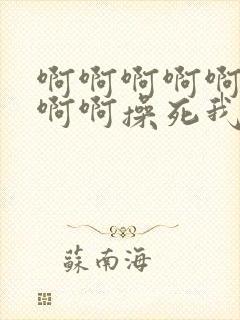 啊啊啊啊啊
啊啊操死我
蘇南海